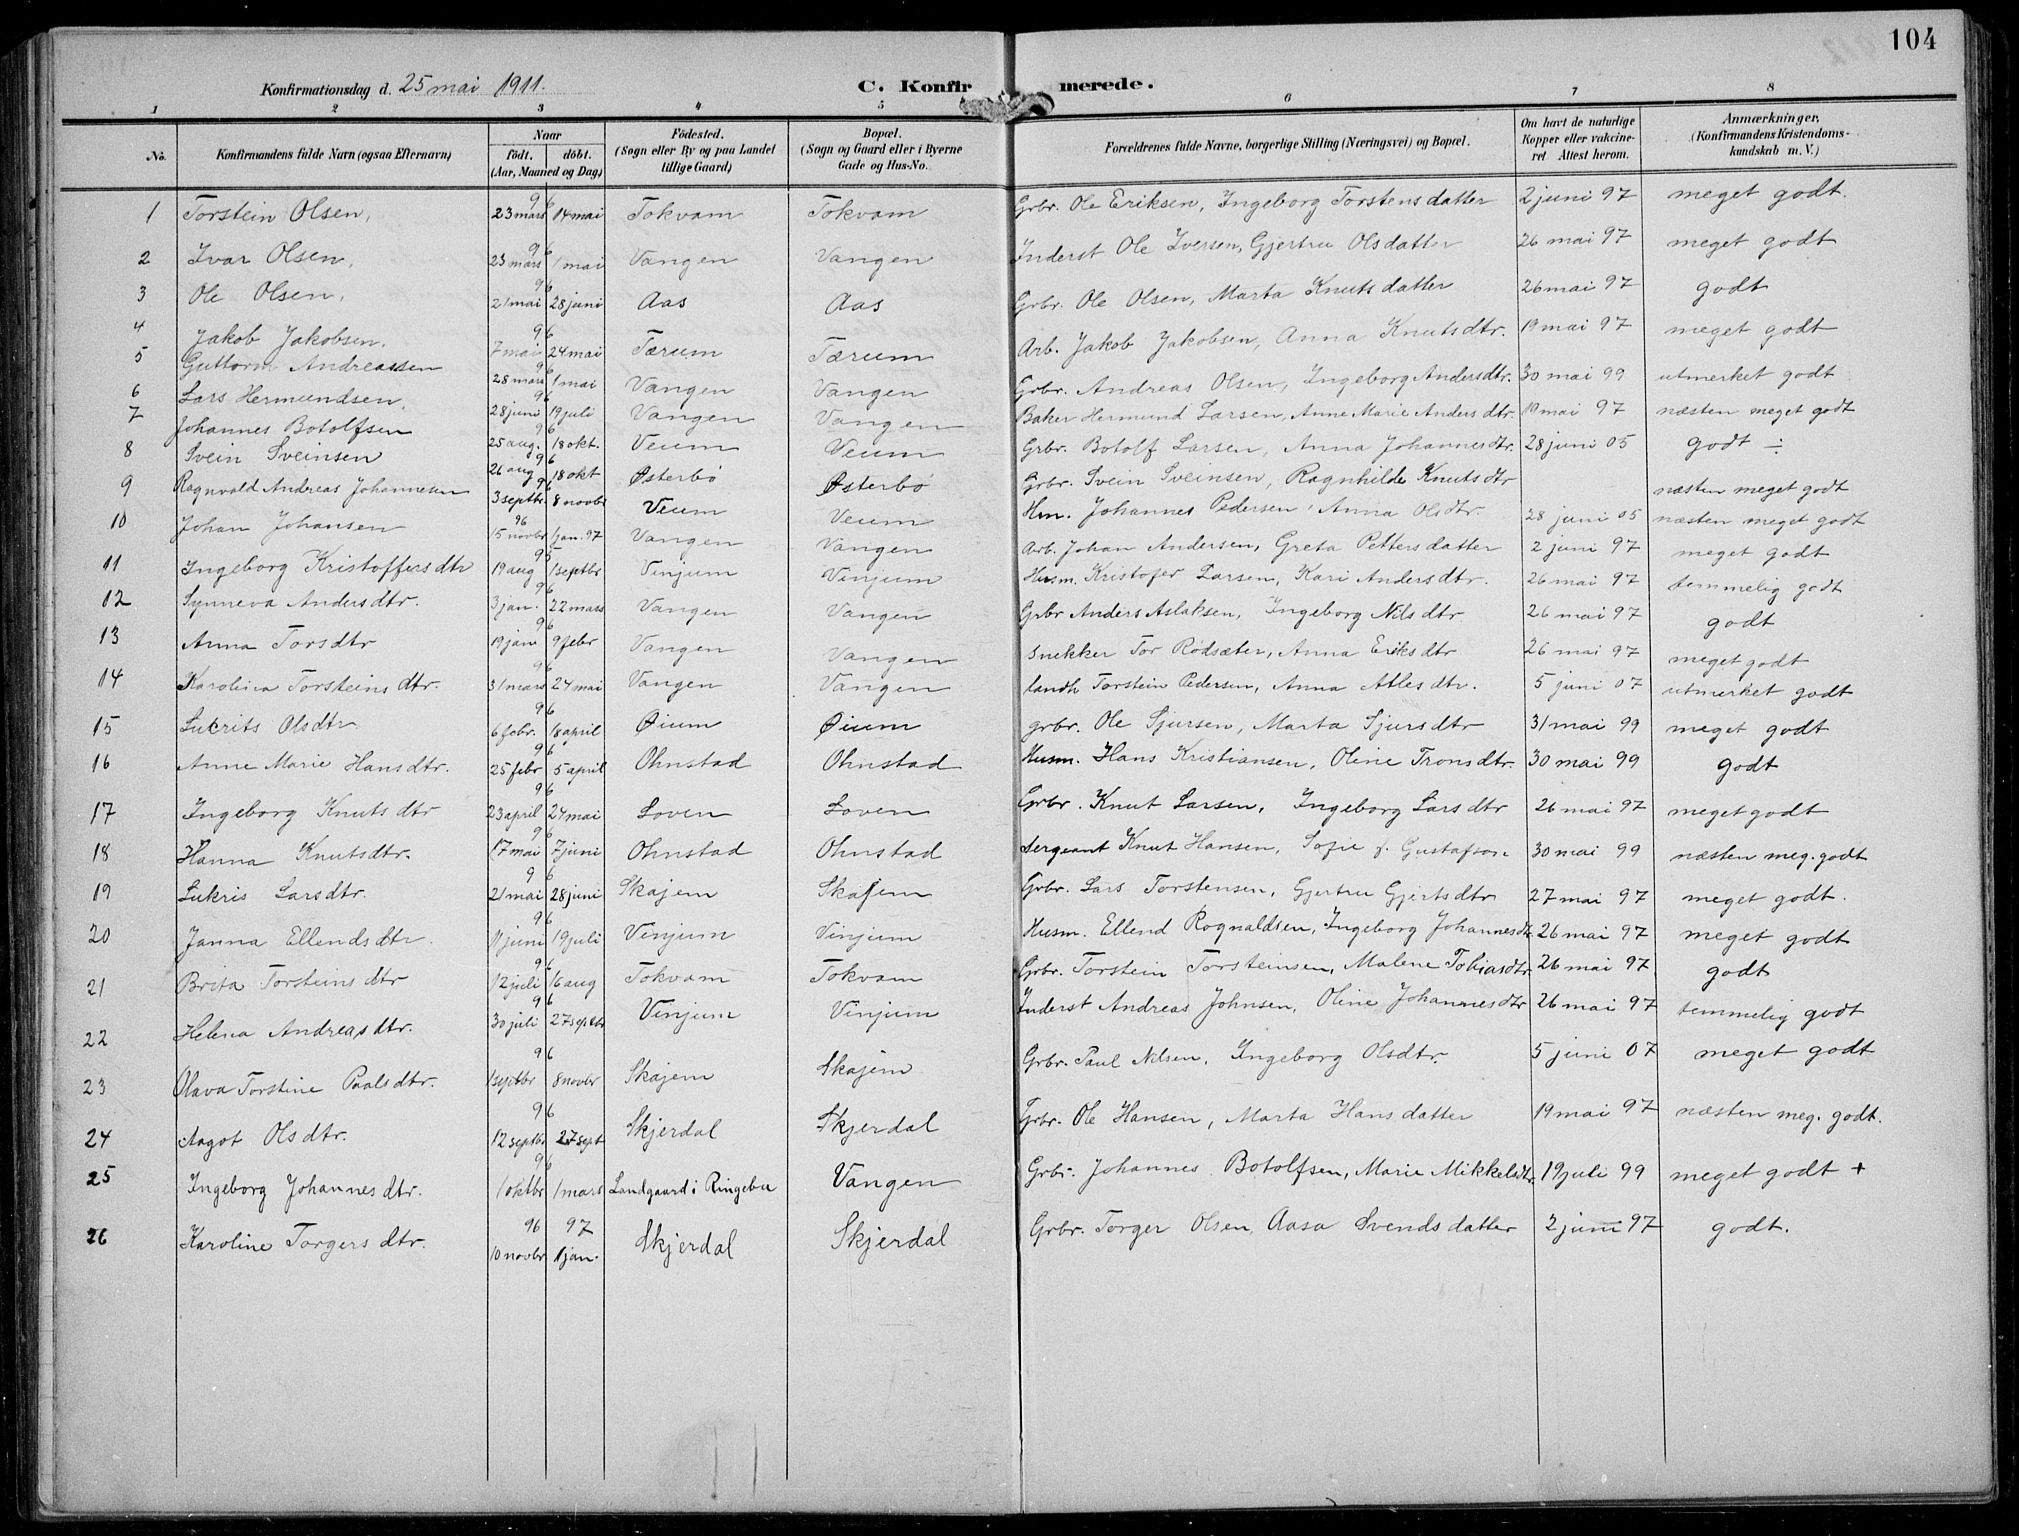 104
Konfirmationsdag d. 25 mai 1911. C. Konfirmerede.
1 2 3 4 5 6 7 8
No. Konfirmandens fulde Navn (ogsaa Efternavn) Naar født. døbt. (Aar, Maaned og Dag) Fødested. (Sogn eller By og paa Landet tillige Gaard) Bopæl. (Sogn og Gaard eller i Byerne Gade og Hus-No. Forældrenes fulde Navne, borgerlige Stilling (Næringsvei) og Bopæl. Om havt de naturlige Kopper eller vakcineret Attest herom. Anmærkninger, (Konfirmandens Kristendomskundskab m. V.)
1 Torstein Olsen, 96 23 mars 14 mai Tokvam Tokvam Grbr. Ole Eriksen, Ingeborg Torstensdatter 2 juni 97 meget godt.
2 Ivar Olsen, 96 23 mars 1 mai Vangen Vangen Inderst Ole Iversen, Gjertru Olsdatter 26 mai 97 meget godt
3 Ole Olsen, 96 21 mai 28 juni Aas Aas Grbr. Ole Olsen, Marta Knutsdatter 26 mai 97 godt
4 Jakob Jakobsen. 96 7 mai 24 mai Tærum Tærum Arb. Jakob Jakobsen, Anna Knutsdtr. 19 mai 97 meget godt
5 Guttorm Andreassen 96 28 mars 1 mai Vangen Vangen Grbr. Andreas Olsen, Ingeborg Andersdtr. 30 mai 99 utmerket godt
6 Lars Hermundsen, 96 28 juni 19 juli Vangen Vangen Baker Hermund Larsen, Anne Marie Andersdtr. 19 mai 97 næsten meget godt
7 Johannes Botolfsen 96 25 aug. 18 okt. Veum Veum Grbr. Botolf Larsen, Anna Johannesdtr. 28 juni 05 godt ÷
8 Svein Sveinsen 96 26 aug 18 okt Østerbø Østerbø Grbr. Svein Sveinsen, Ragnhilde Knutsdtr næsten meget godt
9 Ragnvald Andreas Johannesen 96 3 septbr 8 novbr Veum Veum Hm. Johannes Pedersen, Anna Olsdtr. 28 juni 05 næsten meget godt
10 Johan Johansen 96 15 novbr 1 jan. 97 Vangen Vangen Arb. Johan Andersen, Greta Pettersdatter 2 juni 97 meget godt
11 Ingeborg Kristoffersdtr 95 19 aug 1 septbr Vinjum Vinjum Husm. Kristofer Larsen, Kari Andersdtr. 26 mai 97 temmelig godt
12 Synneva Andersdtr. 96 3 jan. 22 mars Vangen Vangen Grbr Anders Aslaksen, Ingeborg Nilsdtr 26 mai 97 godt
13 Anna Torsdtr 96 19 jan 9 febr Vangen Vangen Snekker Tor Rødsæter, Anna Eriksdtr 26 mai 97 meget godt
14 Karolina Torsteinsdtr. 96 31 mars 24 mai Vangen Vangen landh Torstein Pedersen, Anna Atlesdtr. 5 juni 07 utmerket godt
15 Lucrits Olsdtr 96 6 febr. 18 april Øium Øium grbr. Ole Sjursen, Marta Sjursdtr 31 mai 99 meget godt
16 Anne Marie Hansdtr. 96 25 febr 5 april Ohnstad Ohnstad Husm. Hans Kristiansen, Oline Tronsdtr. 30 mai 99 godt
17 Ingeborg Knutsdtr 96 23 april 24 mai Loven Loven Grbr. Knut Larsen, Ingeborg Larsdtr 26 mai 97 meget godt
18 Hanna Knutsdtr. 96 17 mai 7 juni Ohnstad Ohnstad Sergeant Knut Hansen, Sofie f. Gustafson 30 mai 99 næsten meg. godt
19 Lukris Larsdtr. 96 21 mai 28 juni Skajem Skajem Grbr. Lars Torstensen, Gjertru Gjertsdtr 27 mai 97 meget godt.
20 Janna Ellendsdtr. 96 11 juni 19 juli Vinjum Vinjum Husm. Ellend Rognaldsen, Ingeborg Johannesdtr 26 mai 97 meget godt
21 Brita Torsteinsdtr 96 12 juli 16 aug Tokvam Tokvam Grbr. Torstein Torsteinsen, Malene Tobiasdtr 26 mai 97 godt
22 Helena Andreasdtr. 96 30 juli 27 septbr Vinjum Vinjum Inderst Andreas Johnsen, Oline Johannesdtr 26 mai 97 temmelig godt
23 Olava Torstine Paalsdtr. 96 1 septbr 8 novbr Skajem Skajem Grbr. Paul Nilsen, Ingeborg Olsdtr. 5 juni 07 meget godt
24 Aagot Olsdtr. 96 12 septbr 27 sept Skjerdal Skjerdal Grbr. Ole Hansen, Marta Hansdatter 19 mai 97 næsten meg. godt.
25 Ingeborg Johannesdtr. 96 1 oktbr 1 mars Landgaard i Ringebu Vangen Grbr. Johannes Botolfsen, Marie Mikkelsdtr. 19 juli 99 meget godt +
26 Karoline Torgersdtr. 96 97 10 novbr 1 jan. Skjerdal Skjerdal Grbr. Torger Olsen, Aasa Svendsdatter 2 juni 97 godt.